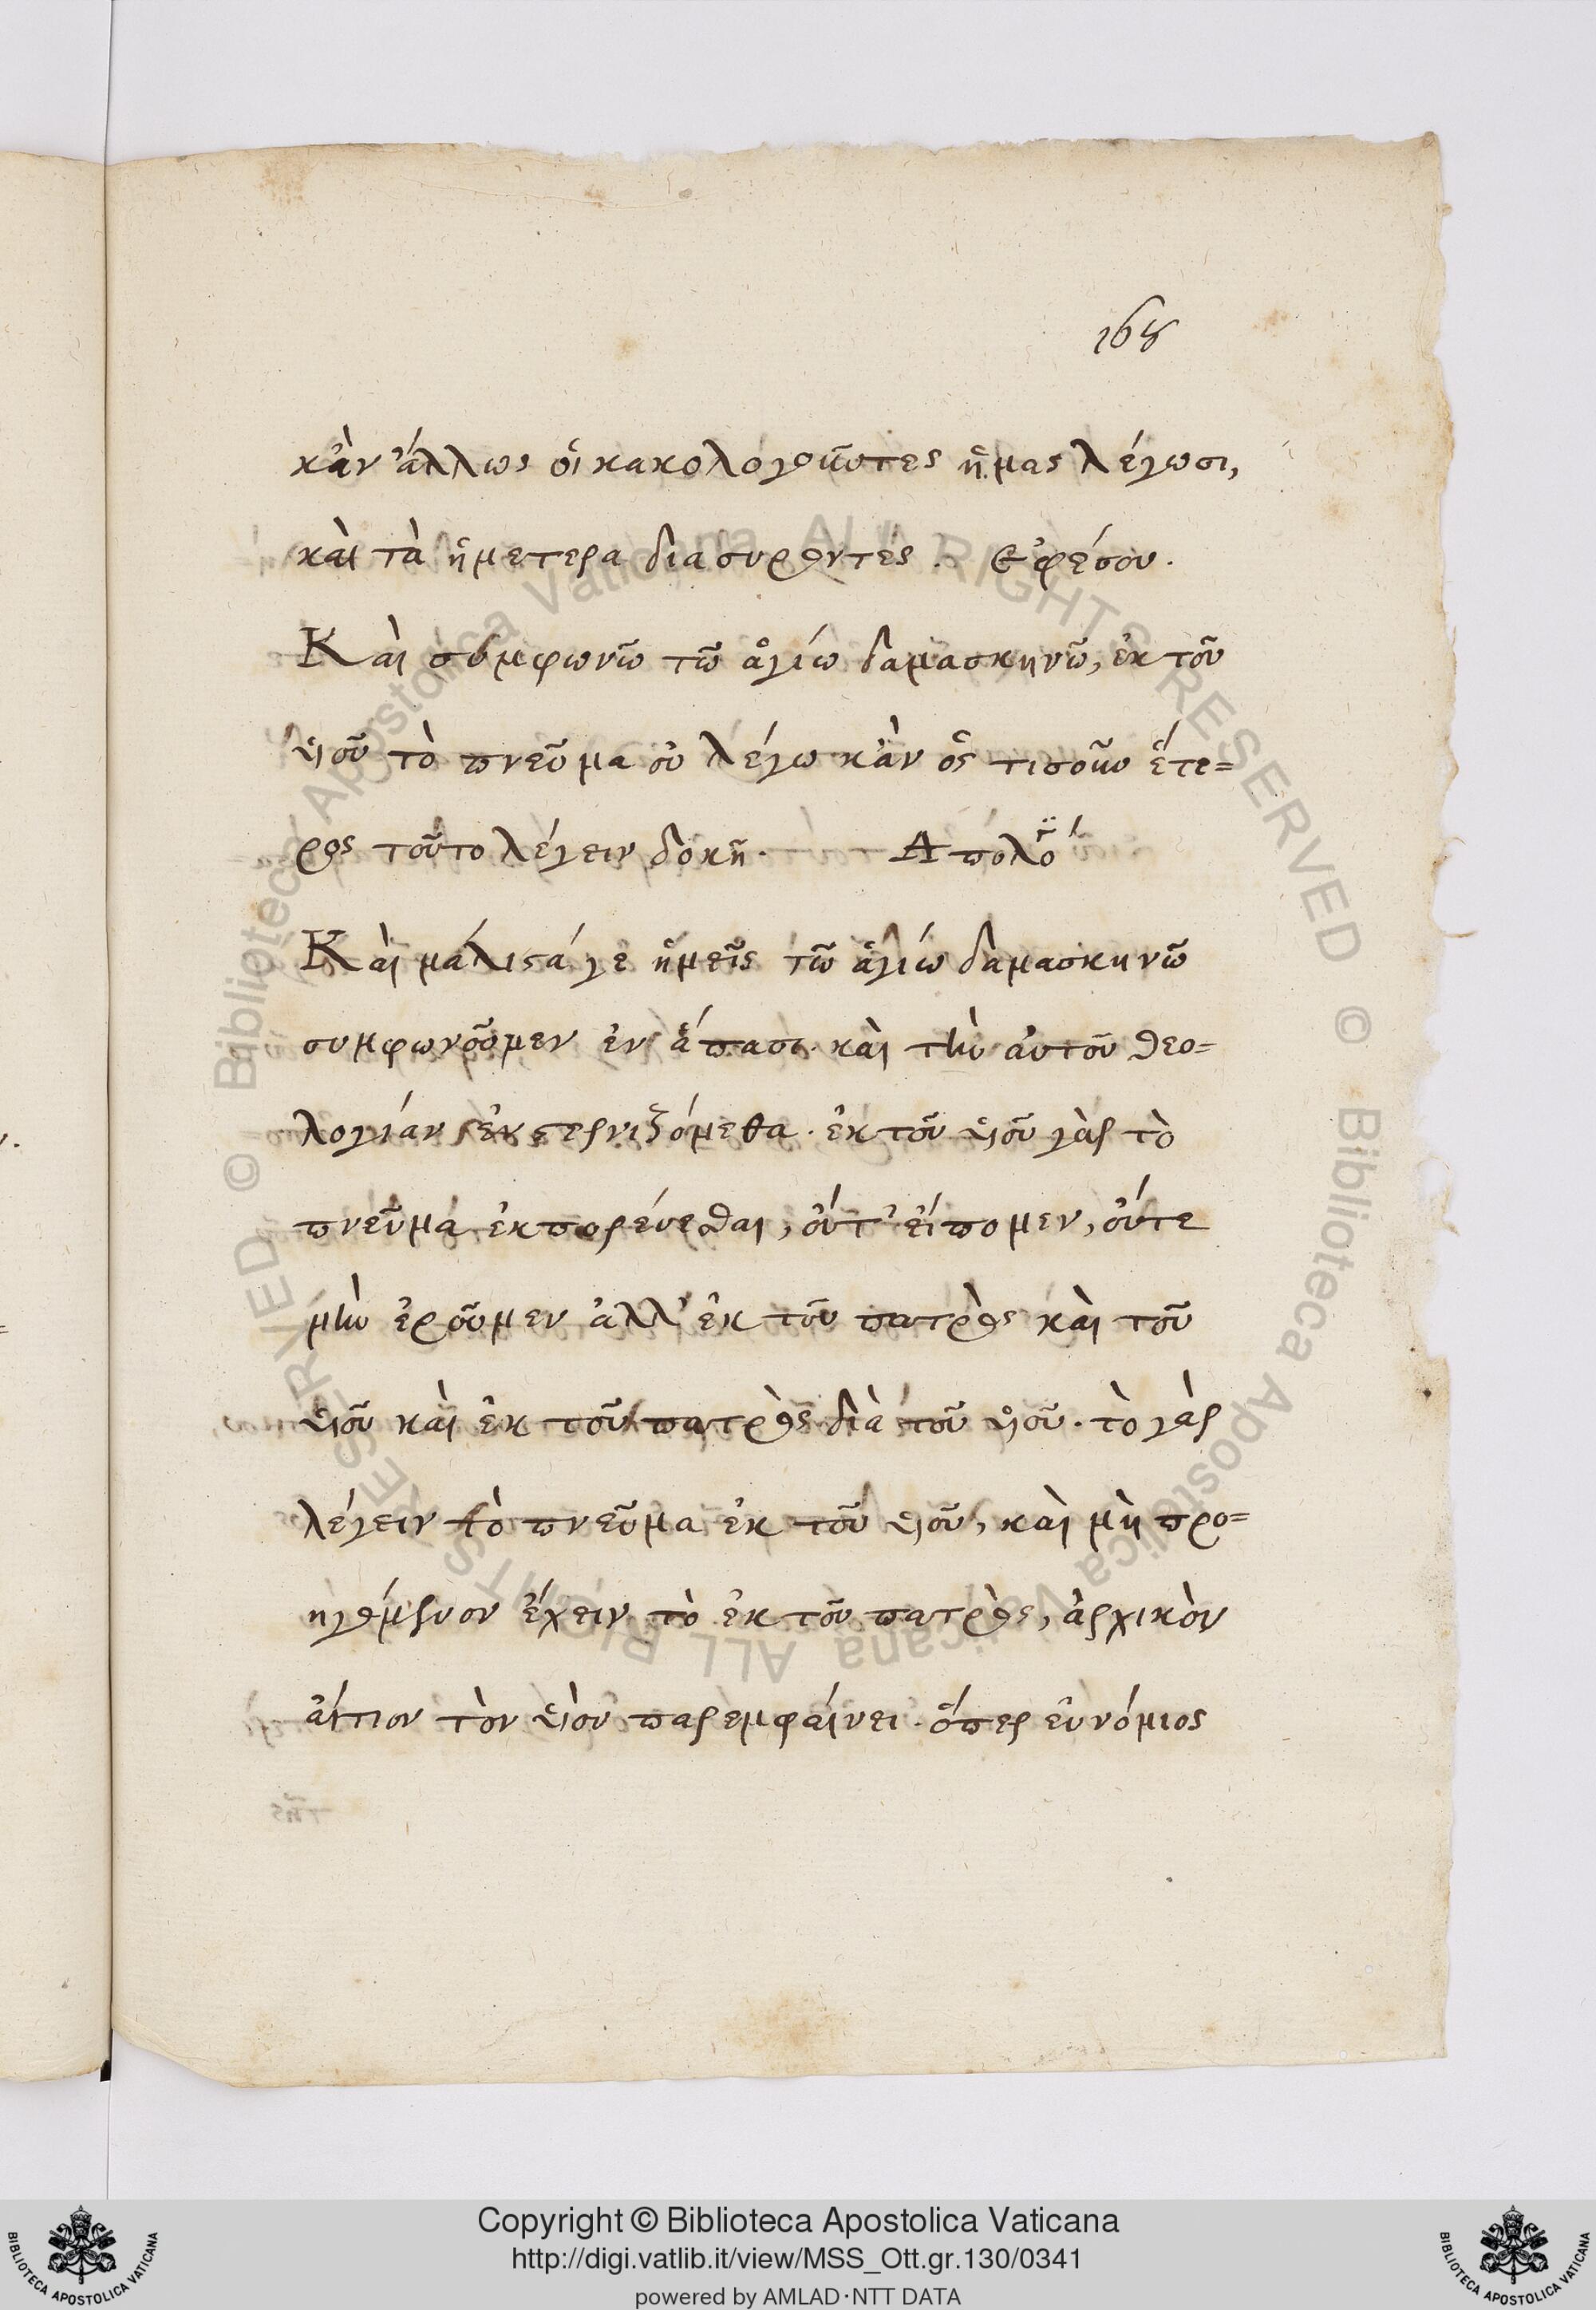 168
κἂν ἄλλως οἱ κακολογοῦντες ἡμας λέγωσι,
καὶ τὰ ἡμετερα διασυροντές. Ἐφέσου.
Καὶ συμφωνῶ τῶ ἁγίω δαμασκηνῶ, ἐκ τοῦ
υἱοῦ τὸ πνεῦμα οὐ λέγω κἂν ὅς τισοῦν ἕτε=
ρος τοῦτο λέγειν δοκῆ. Απολό
Καὶ μάλιστά γε ἡμεῖς τῶ ἁγίω δαμασκηνῶ
συμφωνοῦμεν ἐν ἅπασι. καὶ τὴν αὐτοῦ θεο=
λογίαν ἐνστερνιζόμεθα. ἐκ τοῦ υἱοῦ γὰρ τὸ
πνεῦμα ἐκπορεύεσθαι, οὔτ' εἴπομεν, οὔτε
μὴν ἐροῦμεν ἀλλ' ἐκ τοῦ πατρὸς καὶ τοῦ
υἱοῦ καὶ ἐκ τοῦ πατρὸς διὰ τοῦ υἱοῦ. τὸ γὰρ
λέγειν τὸ πνεῦμα ἐκ τοῦ υἱοῦ, καὶ μὴ προ=
ηγούμενον ἔχειν τὸ ἐκ τοῦ πατρὸς, ἀρχικὸν
αἴτιον τὸν υἱὸν παρεμφαίνει. ὅπερ εὐνόμιος
Copyright © Biblioteca Apostolica Vaticana
http://digi.vatlib.it/view/MSS_Ott.gr.130/0341
powered by AMLAD·NTT DATA
BIBLIOTECA APOSTOLICA VATICANA
BIBLIOTECA APOSTOLICA VATICANA
© Biblioteca Apostolica Vaticana ALL RIGHTS RESERVED © Biblioteca Apostolica Vaticana ALL RIGHTS RESERVED